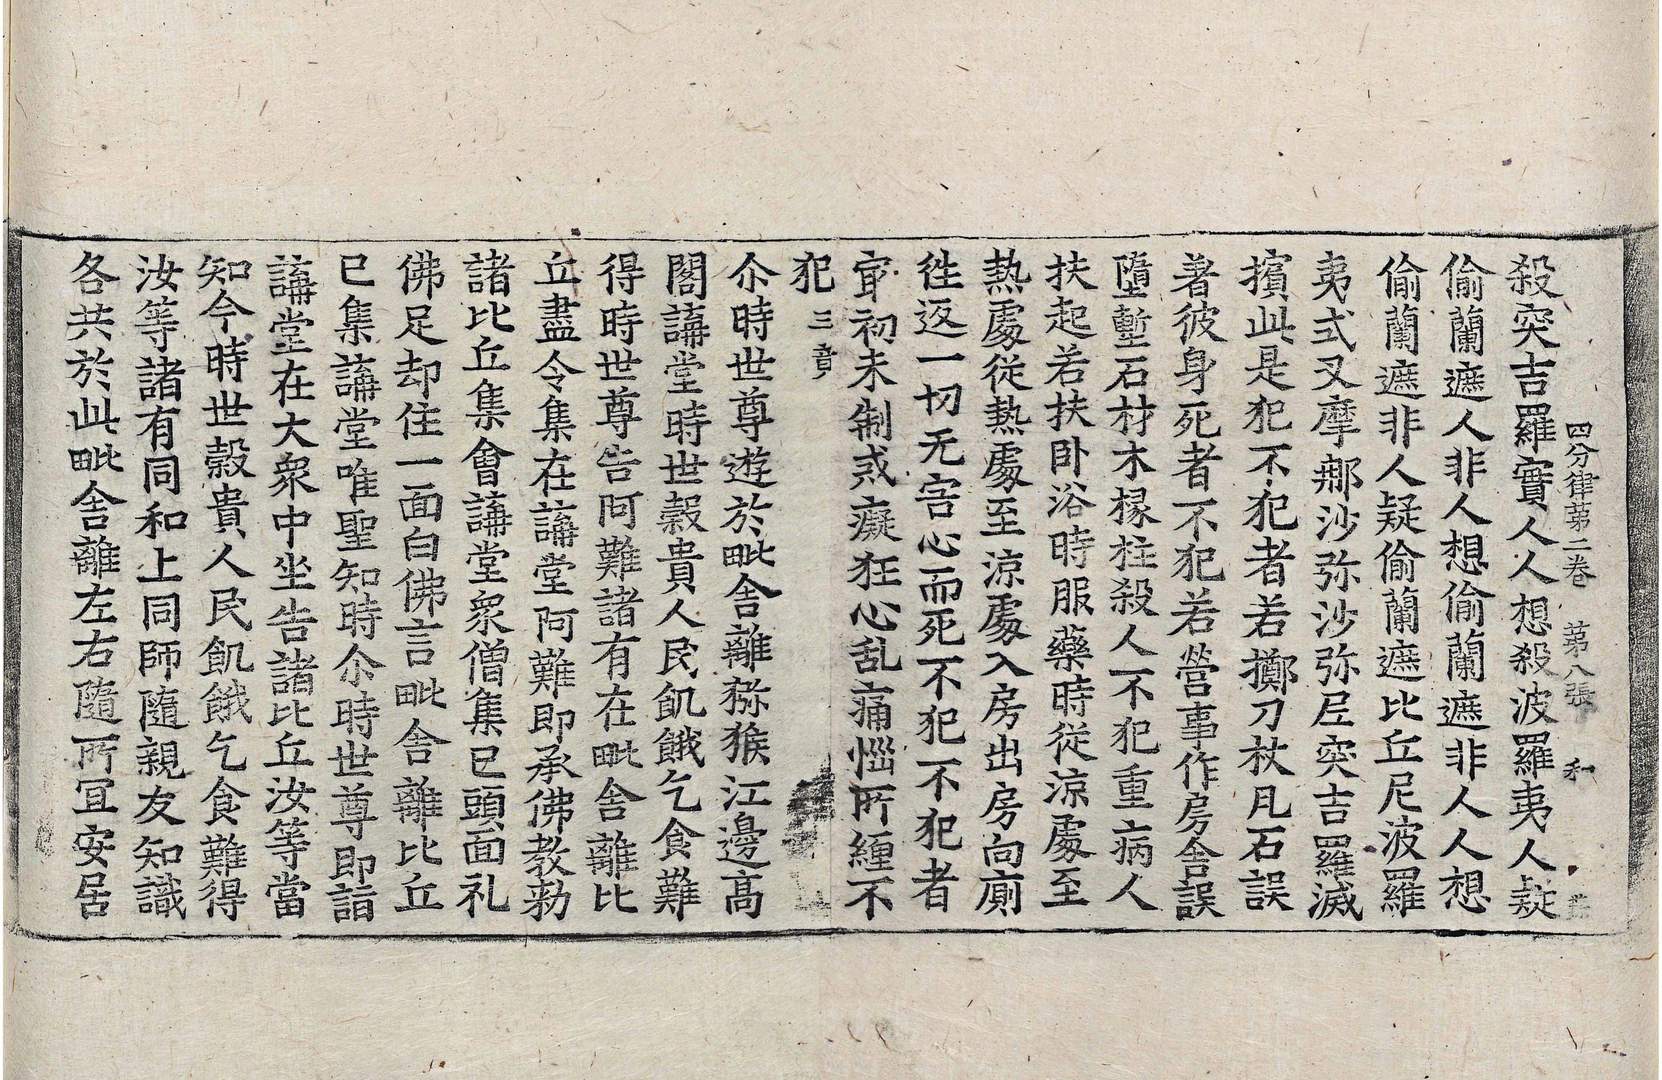 四分律苐二卷 苐八張 和
殺突吉羅實人人想殺波羅夷人疑
偷蘭遮人非人想偷蘭遮非人人想
偷蘭遮非人疑偷蘭遮比丘尼波羅
夷式叉摩那沙弥沙弥尼突吉羅滅
擯此是犯不犯者若擲刀杖凡石誤
著彼身死者不犯若營事作房舍誤
墮塹石材木椽柱殺人不犯重病人
扶起若扶卧浴時服藥時從涼處至
熱處從熱處至涼處入房出房向廁
徃返一切无害心而死不犯不犯者
㝡初未制或癡狂心乱痛惱所纏不
犯 三竟
尒時世尊遊於毗舍離猕猴江邊高
閣講堂時世穀貴人民飢餓乞食難
得時世尊告阿難諸有在毗舍離比
丘盡令集在講堂阿難即承佛教勑
諸比丘集會講堂衆僧集已頭面礼
佛足却住一面白佛言毗舍離比丘
已集講堂唯聖知時尒時世尊即詣
講堂在大衆中坐告諸比丘汝等當
知今時世穀貴人民飢餓乞食難得
汝等諸有同和上同師隨親友知識
各共於此毗舍離左右隨所冝安居